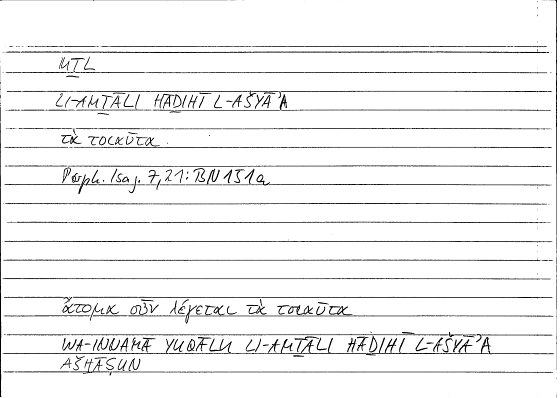 MṮL
LI-AMṮĀLI HĀḎIHĪ L-AŠYĀʾA
τὰ τοιαῦτα
Porph. Isag. 7,21: BN 151a
ἄτομα οὖν λέγεται τὰ τοιαῦτα
WA-INNAMĀ YUQĀLU LI-AMṮĀLI HĀḎIHĪ L-AŠYĀʾA
AŠḪĀṢUN